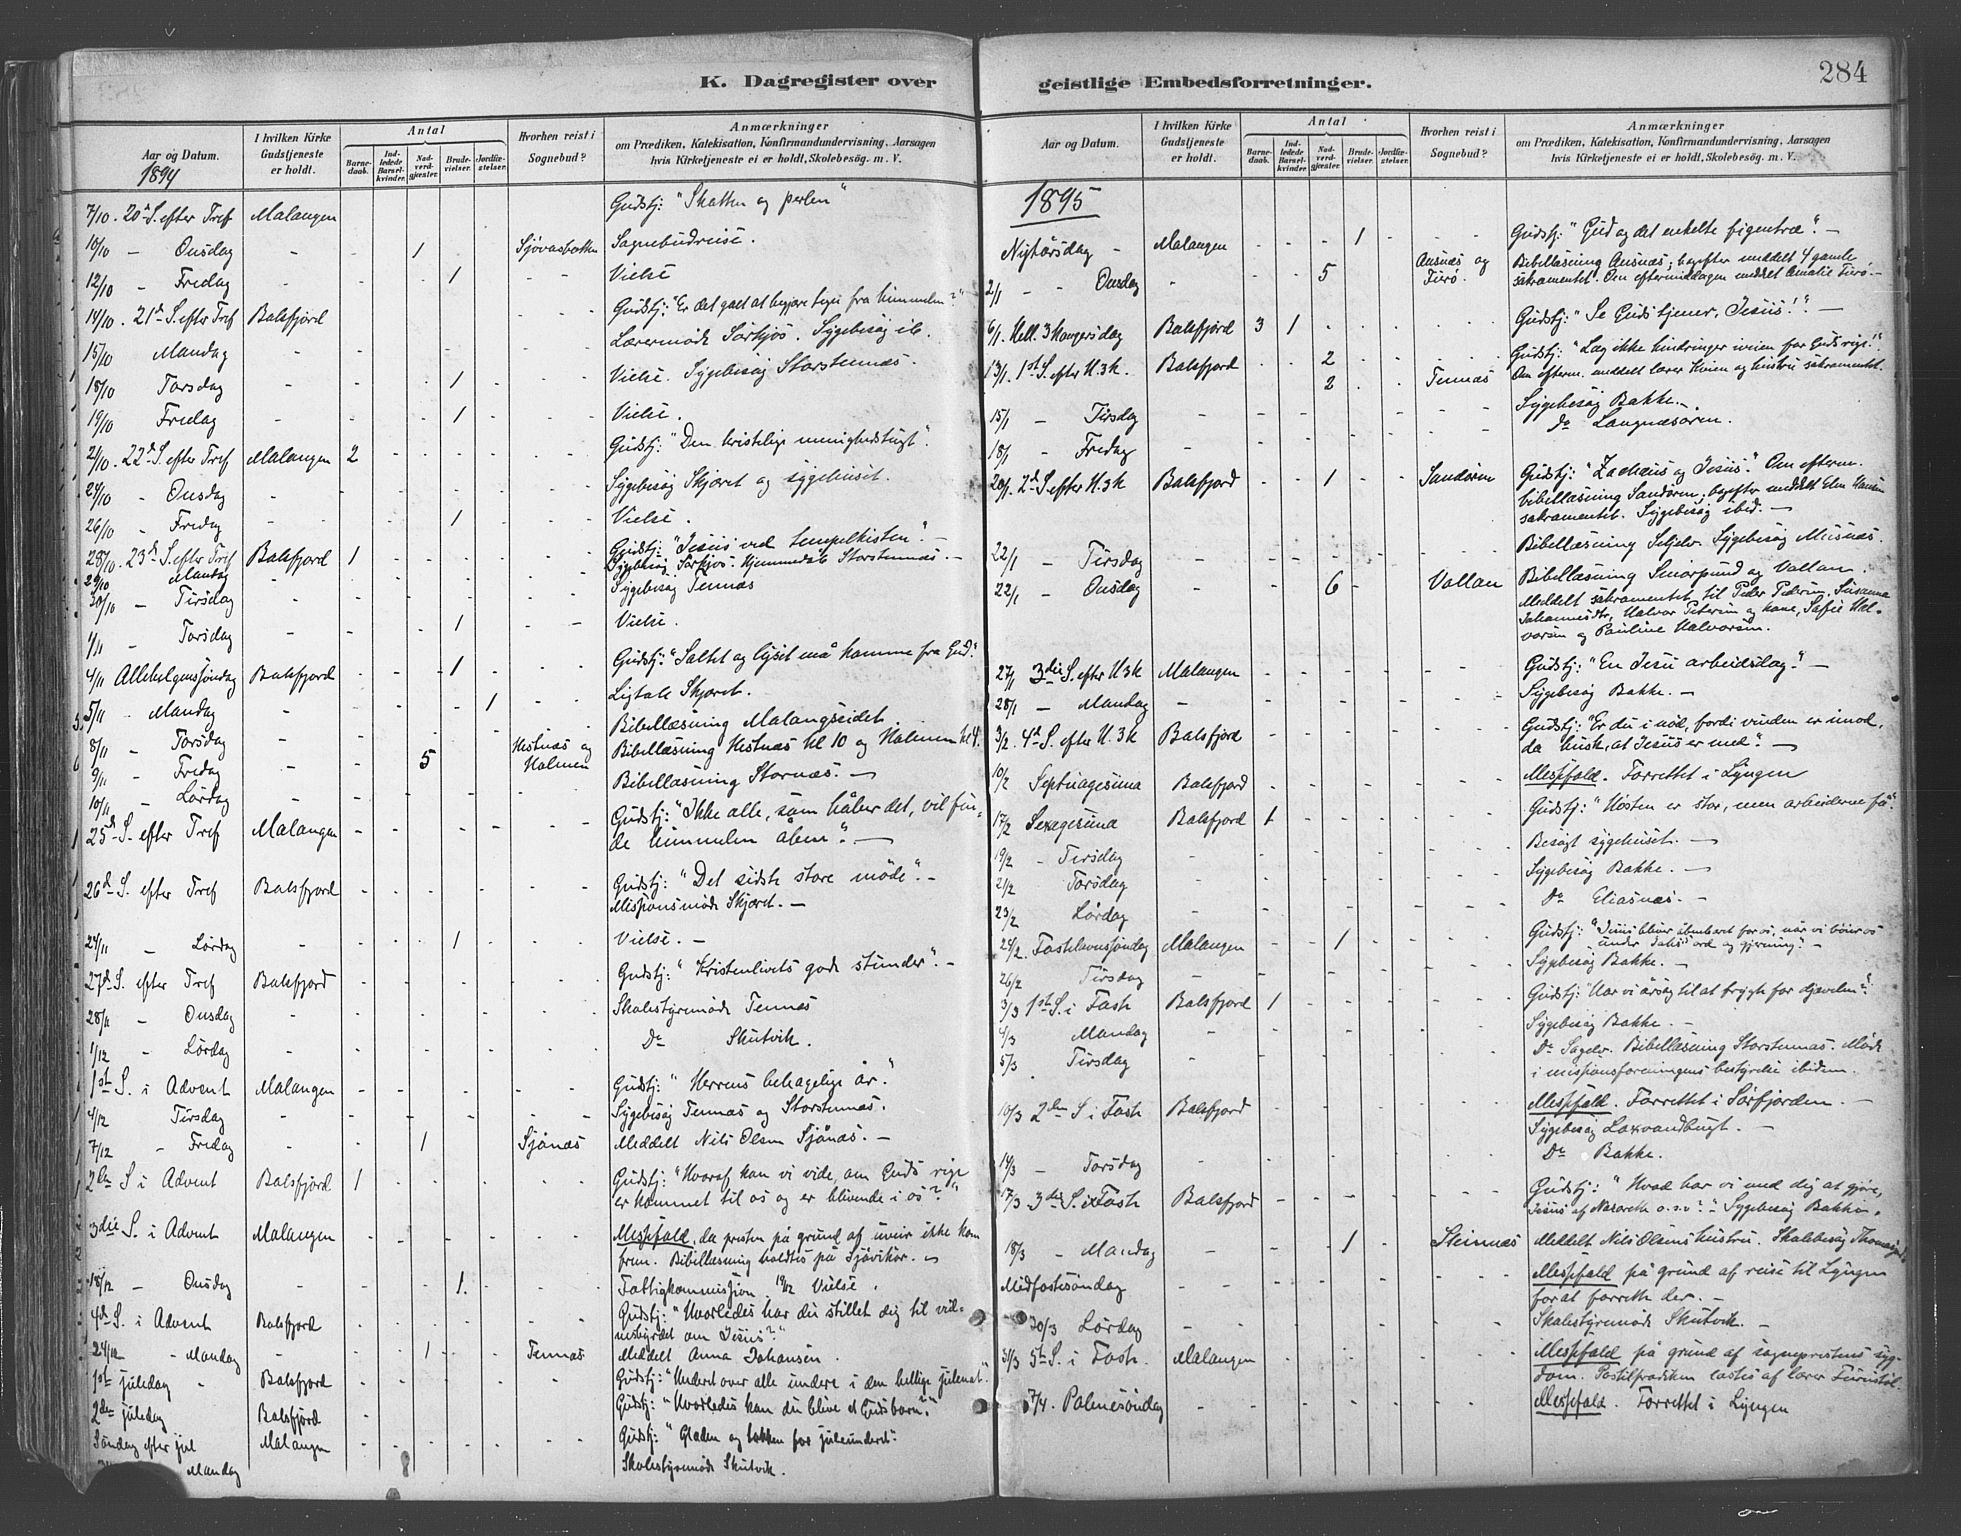 K. Dagregister over
Aar og Datum.
I hvilken Kirke Gudstjeneste er holdt.
Antal
Barnedaab.
Indledede Barselkvinder.
Nadverdgjæster.
Brudevielser.
Jordfæstelser.
Hvorhen reist i Sognebud?
Anmærkninger
om Prædiken, Katekisation, Konfirmandundervisning, Aarsagen
hvis Kirketjeneste ei er holdt, Skolebesøg. m. V.
1894
7/10. 20de S. efter Tref Malangen Gudstj: "Skatten og perlen"
10/10 - Onsdag - 1 Sjøvasbotten Sognebudreise.
12/10 - Fredag - 1 Vielse
14/10. 21de S. efter Tref Balsfjord Gudstj: "Er det galt at begjære tegn fra himmelen?"
15/10 Mandag Lærermøde Sørkjos. Sygebesøg ib.
18/10 Torsdag 1 Vielse. Sygebesøg Storstennæs.
19/10 Fredag 1 Vielse.
21/10. 22de S. efter Tref Malangen 2 Gudstj: "Den kristelige menighedstugt".
24/10 - Onsdag Sygebesøg Skjæret og sygehuset.
26/10 - Fredag 1 Vielse.
28/10. 23de S. efter Tref Balsfjord 1 Gudstj: "Jesus ved tempelkisten". -
29/10 Mandag Sygebesøg Sørkjos. Hjemmedåb Storstennæs. -
30/10 - Tirsdag Sygebesøg Tennæs
1/11 - Torsdag 1 Vielse.
4/11 Allehelgenssøndag Balsfjord 1 Gudstj: "Saltet og lyset må komme fra Gud".
5/11 - Mandag 1 Ligtale Skjæret.
8/11 - Torsdag Bibellæsning Malangseidet.
9/11 - Fredag 5 Hestnæs og Holmen Bibellæsning Hestnæs kl 10 og Holmen kl 4.
10/11 - Lørdag Bibellæsning Stornæs. -
25de S. efter Tref Malangen Gudstj: "Ikke alle, som håber det, vil fin-
de himmelen åben". -
26de S. efter Tref Balsfjord Gudstj: "Det sidste store møde". -
Missionsmøde Skjæret. -
24/11 - Lørdag 1 Vielse. -
27de S. efter Tref Balsfjord Gudstj: "Kristenlivets gode stunder". -
28/11 - Onsdag Skolestyremøde Tennæs
1/12 - Lørdag Do Skutvik.
1st S. i Advent Malangen Gudstj: "Herrens behagelige år".
4/12 Tirsdag Sygebesøg Tennæs og Storstennæs.
7/12 - Fredag 1 Sjånæs Meddelt Nils Olsen Sjånæs. -
2den S i Advent Balsfjord 1 Gudstj: "Hvoraf kan vi vide, om Guds rige
er kommet til os og er blivende i os?"
3die S. i Advent Malangen Messfald, da presten på grund af uveir ikke kom
frem. Bibellæsning holdtes på Sjåvikør. -
18/12 - Onsdag 1. Fattigkommission 19/12 Vielse.
4de S. i Advent Balsfjord Gudstj: "Hvorledes har du stillet dig til vid-
nesbyrdet om Jesus?"
24/12 - Mandag 1 Tennæs Meddelt Anna Johansen.
1st juledag Balsfjord Gudstj: "Underet over alle undere i den hellige julenat".
2den juledag Balsfjord Gudstj: "Hvorledes kan du blive et Gudsbarn".
Søndag efter jul Malangen Gudstj: "Glæden og takken for juleunderet".
Mandag Skolestyremøde Skutvik.
geistlige Embedsforretninger.
284
Aar og Datum.
I hvilken Kirke Gudstjeneste er holdt.
Antal
Barnedaab.
Indledede Barselkvinder.
Nadverdgjæster.
Brudevielser.
Jordfæstelser.
Hvorhen reist i Sognebud?
Anmærkninger
om Prædiken, Katekisation, Konfirmandundervisning, Aarsagen
hvis Kirketjeneste ei er holdt, Skolebesøg. m. V.
1895
Nytårsdag - Malangen 1 Gudstj: "Gud og det enkelte figentræ". -
2/1 - Onsdag 5 Ansnæs og Tusø. Bibellæsning Ansnæs; bagefter meddelt 4 gamle
sakramentet. Om eftermiddagen meddelt Amalie Tusø. -
6/1. Hell. 3 Kongersdag Balsfjord 3 1 Gudstj: "Se Guds tjener, Jesus!". -
13/1. 1st S. efter H.3k. Balsfjord 2 Gudstj: "Læg ikke hindringer i veien for Guds rige!"
2 Tennæs Om efterm. meddelt lærer Kvien og hustru sakramentet.
15/1 - Tirsdag Sygebesøg Bakke. -
18/1 - Fredag Do Langnæsøren.
20/1. 2de S. efter H.3k Balsfjord 1 Sandøren Gudstj: "Zachæus og Jesus". Om efterm.
bibellæsning Sandøren; bagefter meddelt Elen Hansen
sakramentet. Sygebesøg ibid. -
22/1 - Tirsdag Bibellæsning Seljelv. Sygebesøg Meisnæs.
22/1 - Onsdag 6 Vollan Bibellæsning Smørsund og Vollan.
Meddelt sakramentet til Peder Pedersen, Susanna
Johannesdtr, Halvor Petersen og kone, Sofie Hal-
vorsen og Pauline Halvorsen.
27/1 3die S. efter H.3k Malangen Gudstj: "En Jesu arbeidsdag". -
28/1 - Mandag Sygebesøg Bakke. -
3/2. 4de S. efter H.3k Balsfjord Gudstj: "Er du i nød, fordi vinden er imod,
da husk, at Jesus er med". -
10/2 Septuagesima Balsfjord Messfald. Forrettet i Lyngen
17/2 Sexagesima Balsfjord 1 Gudstj: "Høsten er stor, men arbeiderne få".
19/2 - Tirsdag Besøgt sygehuset. -
21/2 - Torsdag Sygebesøg Bakke. -
23/2 Lørdag Do Eliasnæs. -
24/2. Fastelavnssøndag Malangen 1 Gudstj: "Jesus bliver åbenbaret for os, når vi bøier os
under ord og gjerning". -
26/2 Tirsdag Sygebesøg Bakke. -
3/3 1st S. i Faste Balsfjord 1 Gudstj: "Har vi årsag til at frygte for djævelen".
4/3 Mandag Sygebesøg Bakke. -
5/3 Tirsdag Do Sagelv. Bibellæsning Storstennæs. Møde
i missionsforeningens bestyrelse ibidem.
10/3 2den S i Faste Balsfjord Messfald. Forrettet i Sørfjorden. -
Sygebesøg Laxvandbugt. -
14/3 - Torsdag Do Bakke.
17/3 3die S. i Faste Balsfjord Gudstj: "Hvad har vi med dig at gjøre,
Jesus af Nazareth o.s.v?" Sygebesøg Bakke.
18/3 - Mandag 1 Steinnæs Meddelt Nils Olsens hustru. Skolebesøg
Midfastesøndag Messfald på grund af reise til Lyngen
for at forrette der. -
30/3 Lørdag Skolestyremøde Skutvik. -
31/3 5te S. i Faste Malangen Messfald på grund af sognepræstens syg-
dom. Postilprædiken læstes af lærer
7/4. Palmesøndag Messfald. Forrettet i Lyngen